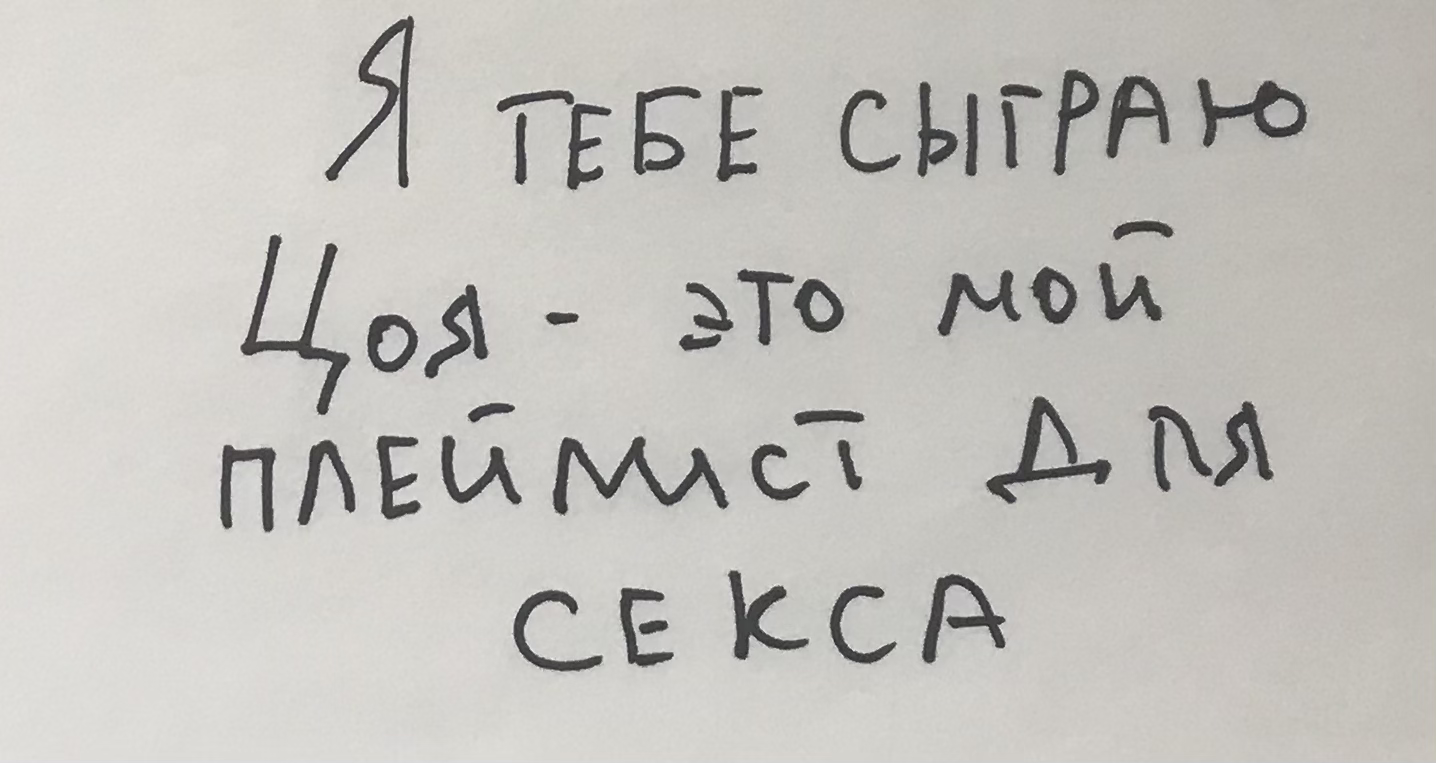 Я ТЕБЕ СЫГРАЮ
ЦОЯ - ЭТО МОЙ
ПЛЕЙЛИСТ ДЛЯ
СЕКСА